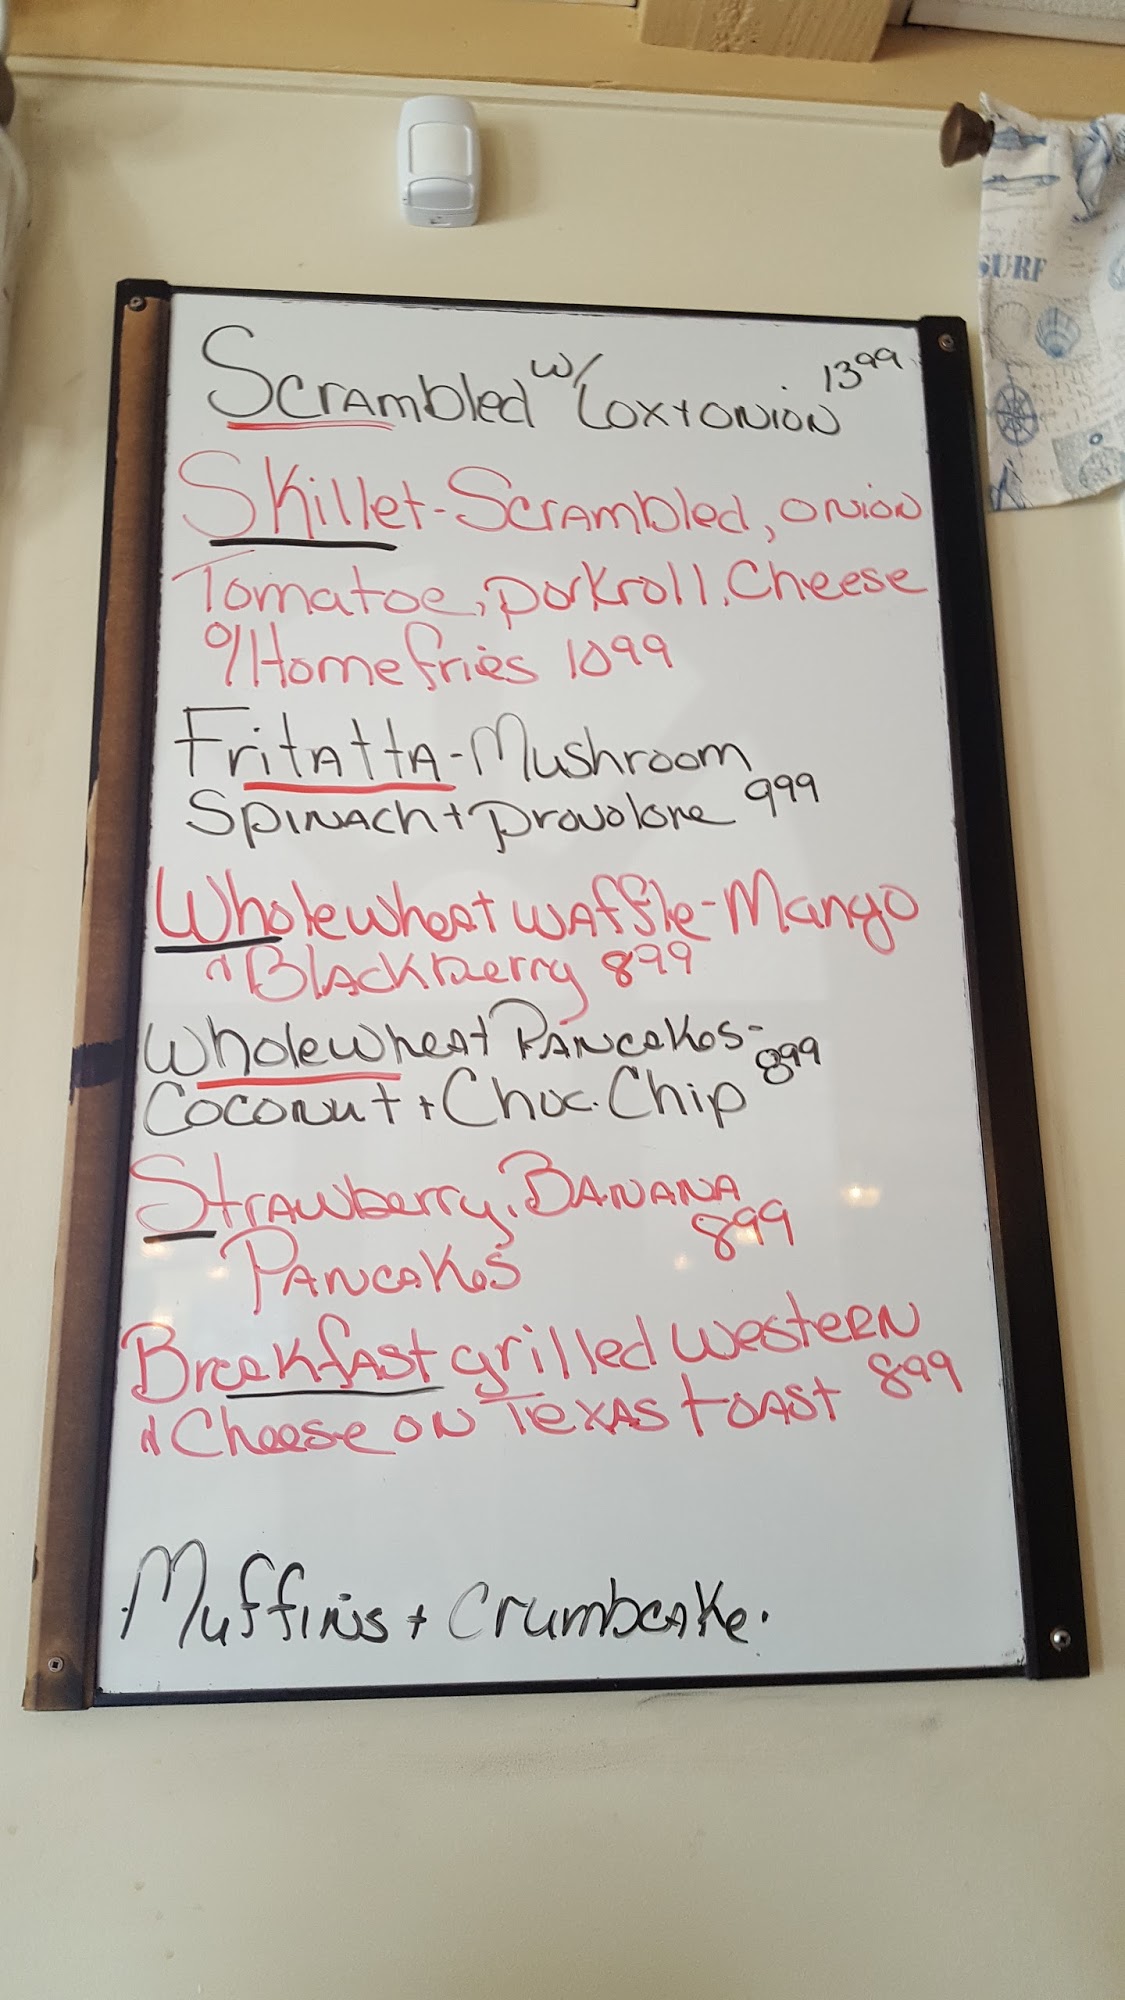 Scrambled w/ Lox + onion 13 99
Skillet - Scrambled, onion
Tomatoe, porkroll, Cheese
o/Homefries 10 99
Fritatta - Mushroom
Spinach + provolone 9 99
Wholewheat waffle - Mango
+ Blackberry 8 99
Wholewheat Pancakes -
Coconut + Choc. Chip 8 99
Strawberry, Banana
Pancakes 8 99
Breakfast grilled western
+ Cheese on Texas toast 8 99
Muffins + Crumbcake.
SURF